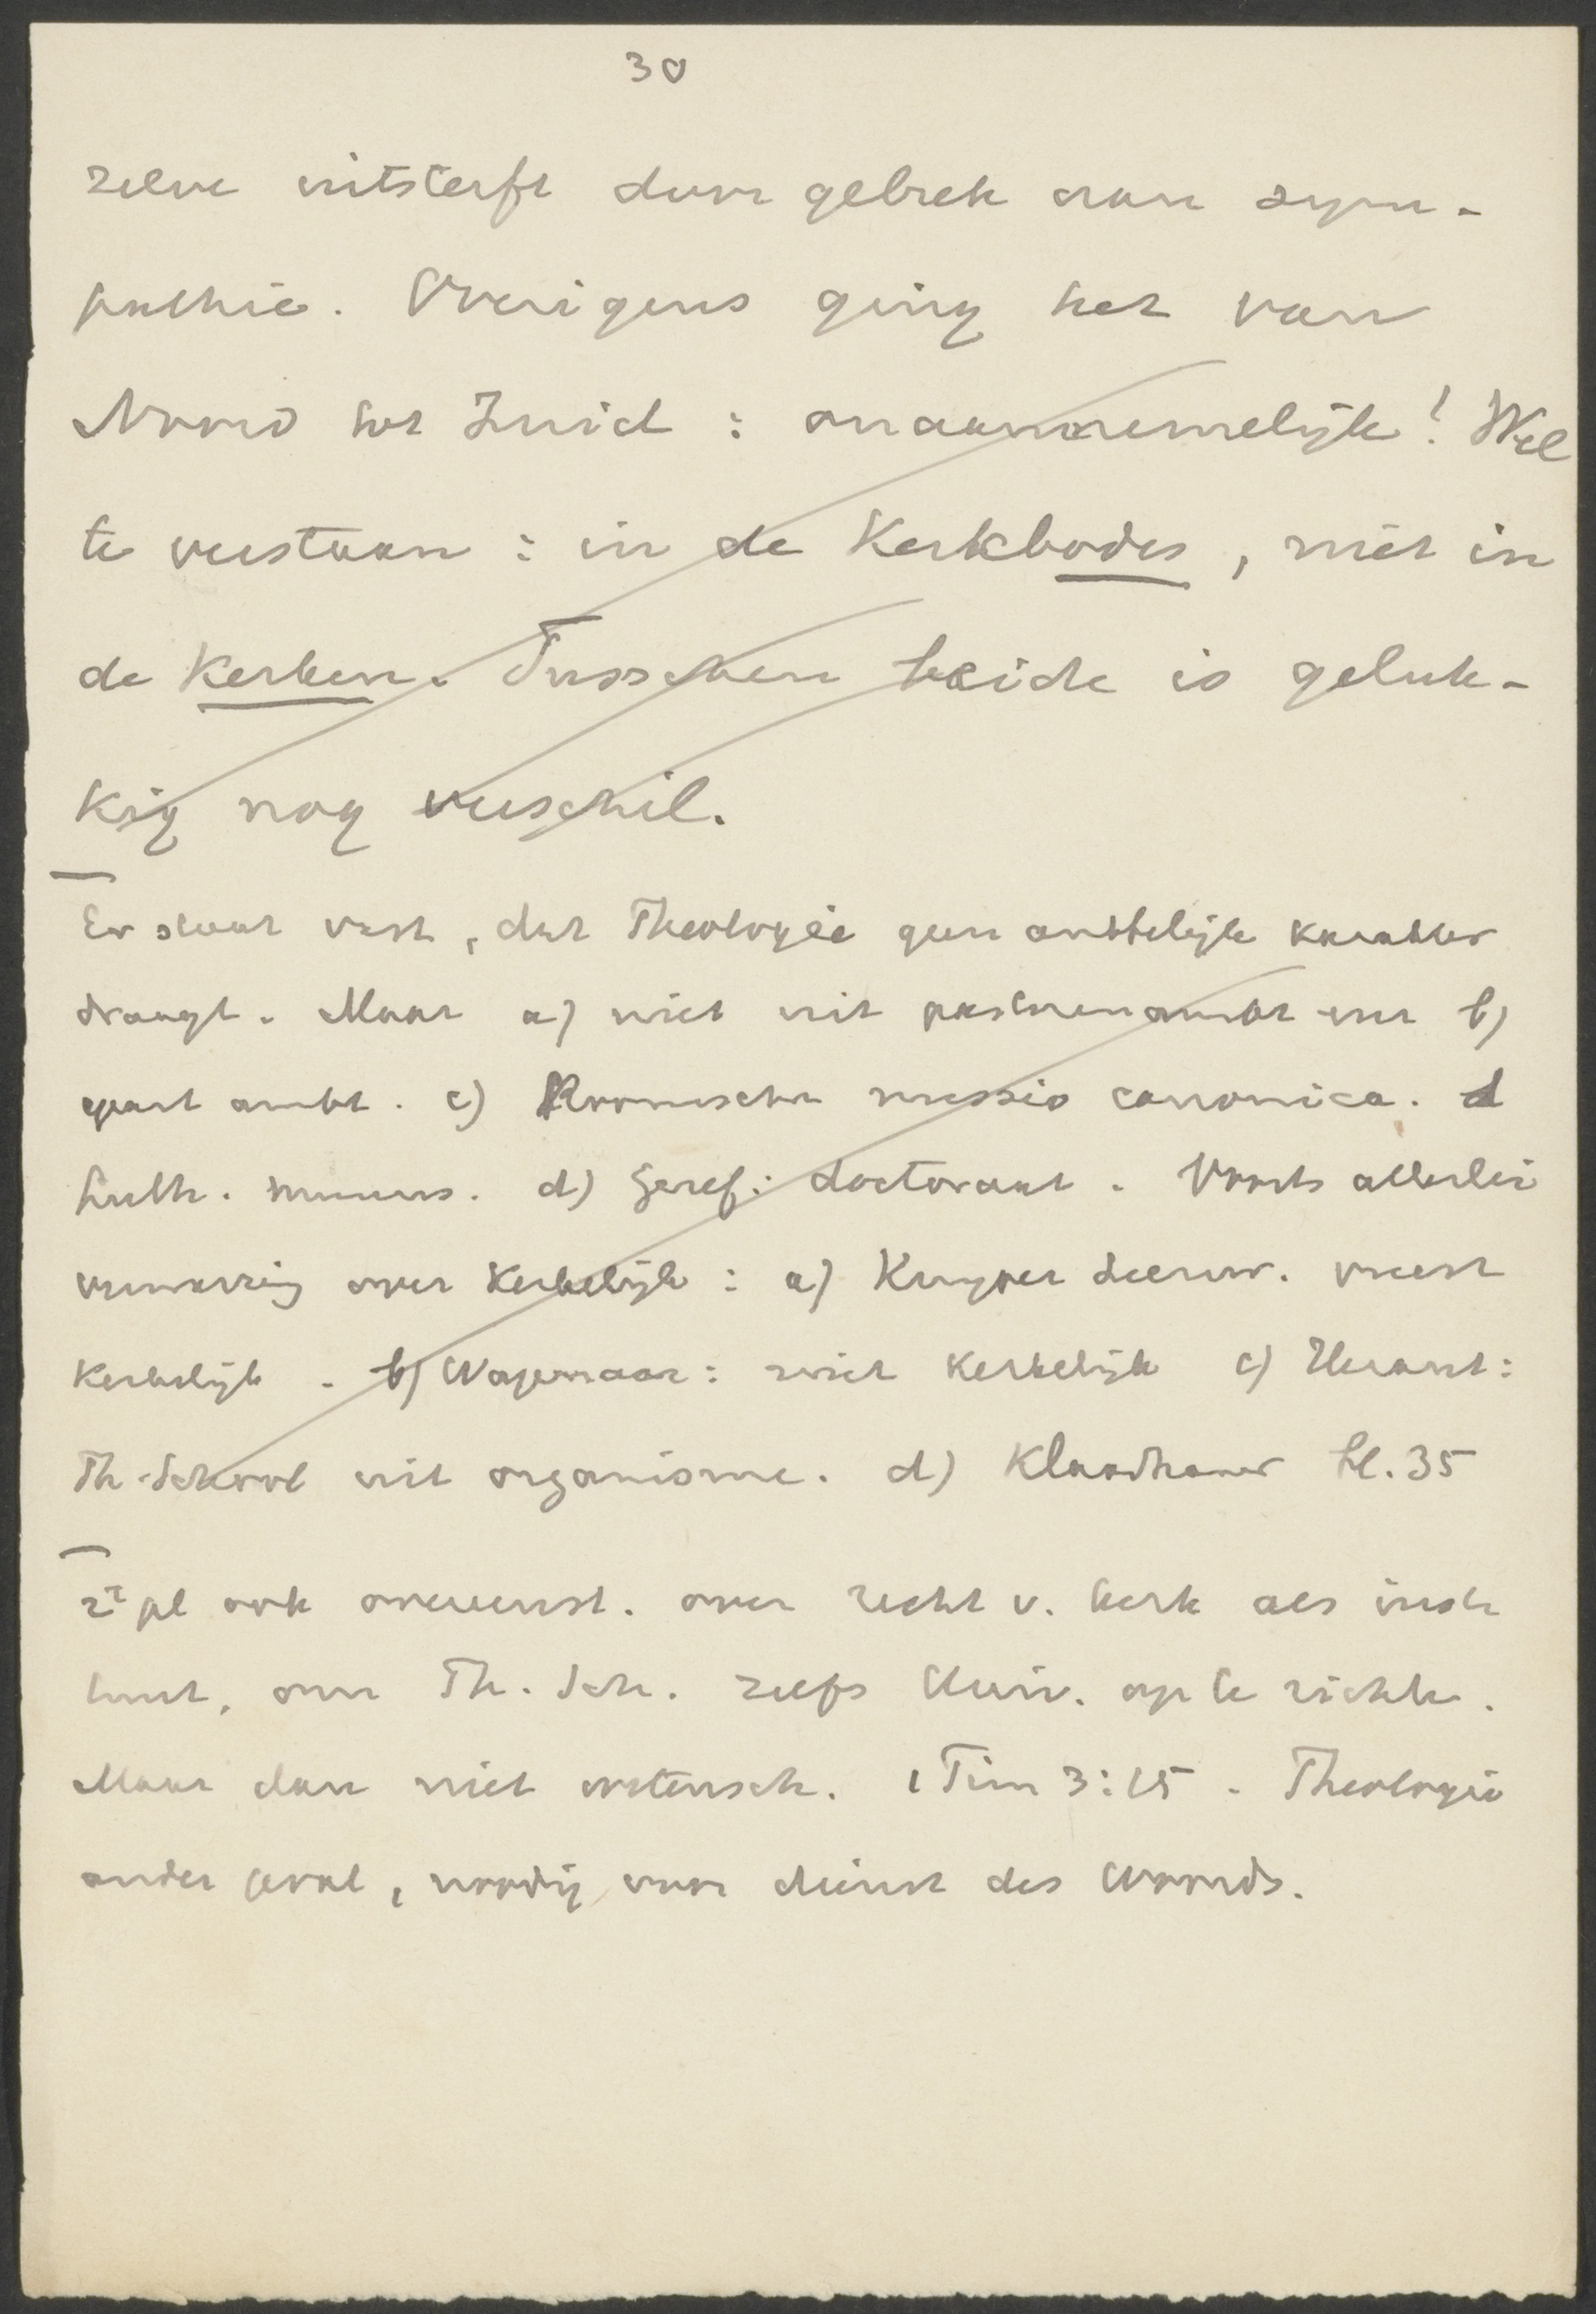 30
zelve uitsterft door gebrek aan sym-
pathie. Overigens ging het van
Noord tot Zuid : onaannemelijk! Wel
te verstaan : in de Kerkbodes, niet in
de Kerken. Tusschen beide is geluk-
kig nog verschil.
Er staat vast, dat Theologie geen ambtelijk karakter
draagt. Maar a) niet uit pastorenambt en b)
apart ambt. c) Roomsche missio canonica. d
Luth. munus. d) Geref: doctoraat. Voorts allerlei
verwarring over Kerkelijk : a) Kuyper Leeuw. meest
Kerkelijk. b) Wagenaar: niet Kerkelijk c) Heraut:
Th. School uit organisme. d) Klaarhamer bl. 35
2e pl ook overeenst. over recht v. kerk als insti
tuut, om Th. Sch. zelfs Univ. op te richte.
Maar dan niet wetensch. 1 Tim 3:15. Theologie
ander geval, noodig voor dienst des Woords.